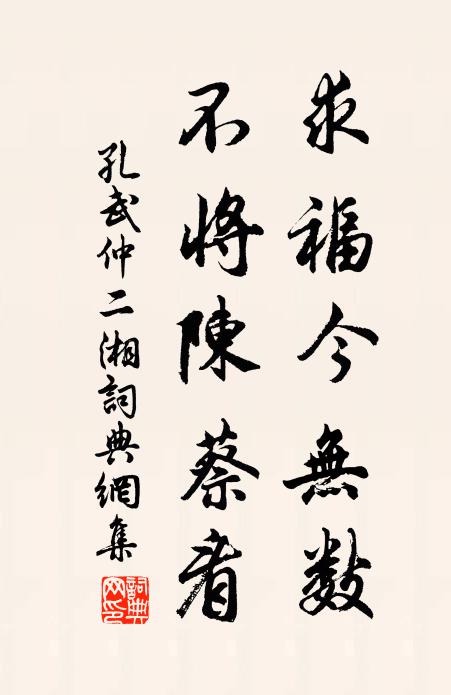 求福今無數
不將陳蔡看
孔武仲二湘詞典網集
詞典網印